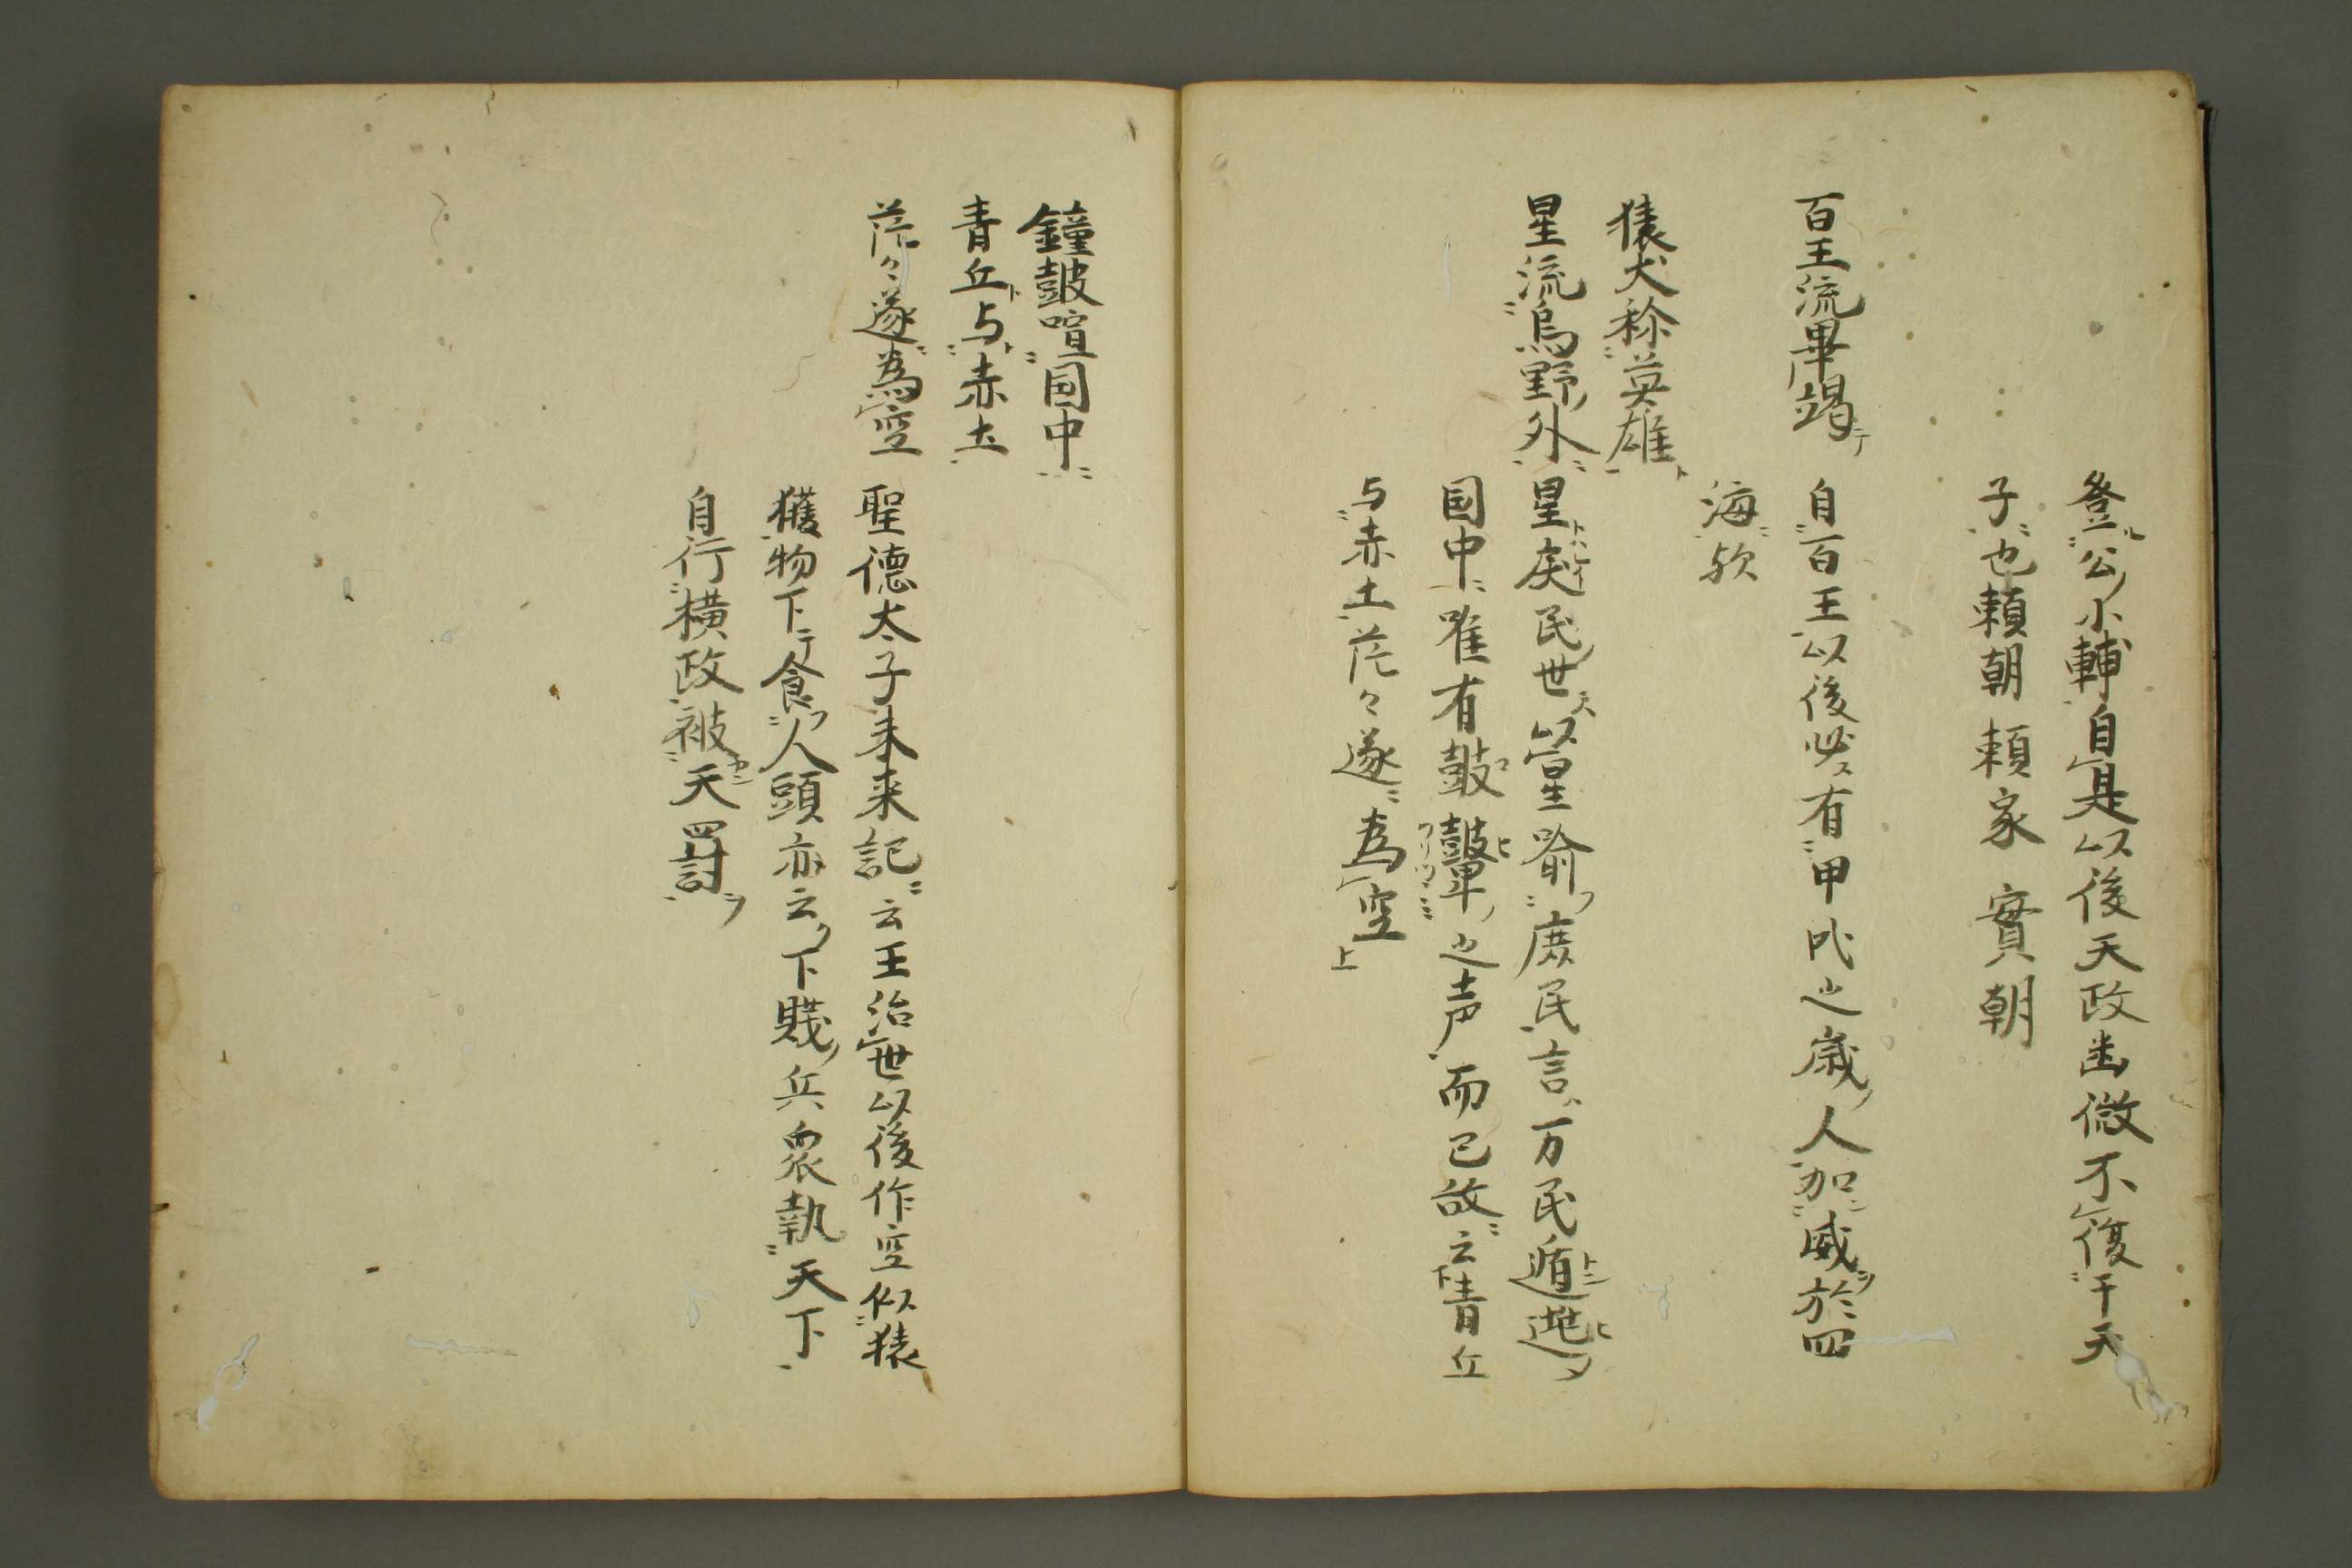 登公小輔自是以後天政幽微不復干天
子也頼朝 頼家 實朝
百王流畢竭 自百王以後必有甲代之歳人加威於四
海欤
猿犬称英雄
星流鳥野外 星戻民世以星喩庶民言万民遁逃
国中唯有鼓鼙之声而已故云青丘
与赤土茫々遂為空
鐘鼓喧国中
青丘与赤土
茫々遂為空 聖徳太子未来記云王治世以後作空似猿
獲物下食人頭亦云下賤兵衆執天下
自行横政被天罸